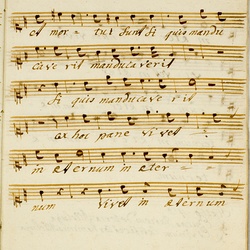 et mor - tui sunt si quis mandu
cave rit manducaverit
si quis manducave rit
ex hoc pane vi vet
in æternum in æter -
num vivet in æternum